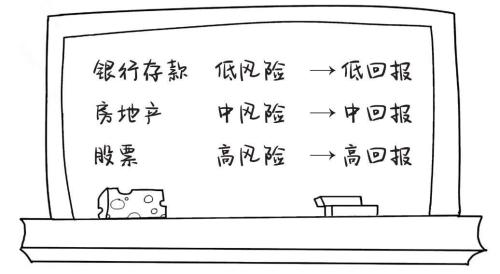 银行存款 低风险 →低回报
房地产 中风险 →中回报
股票 高风险 →高回报